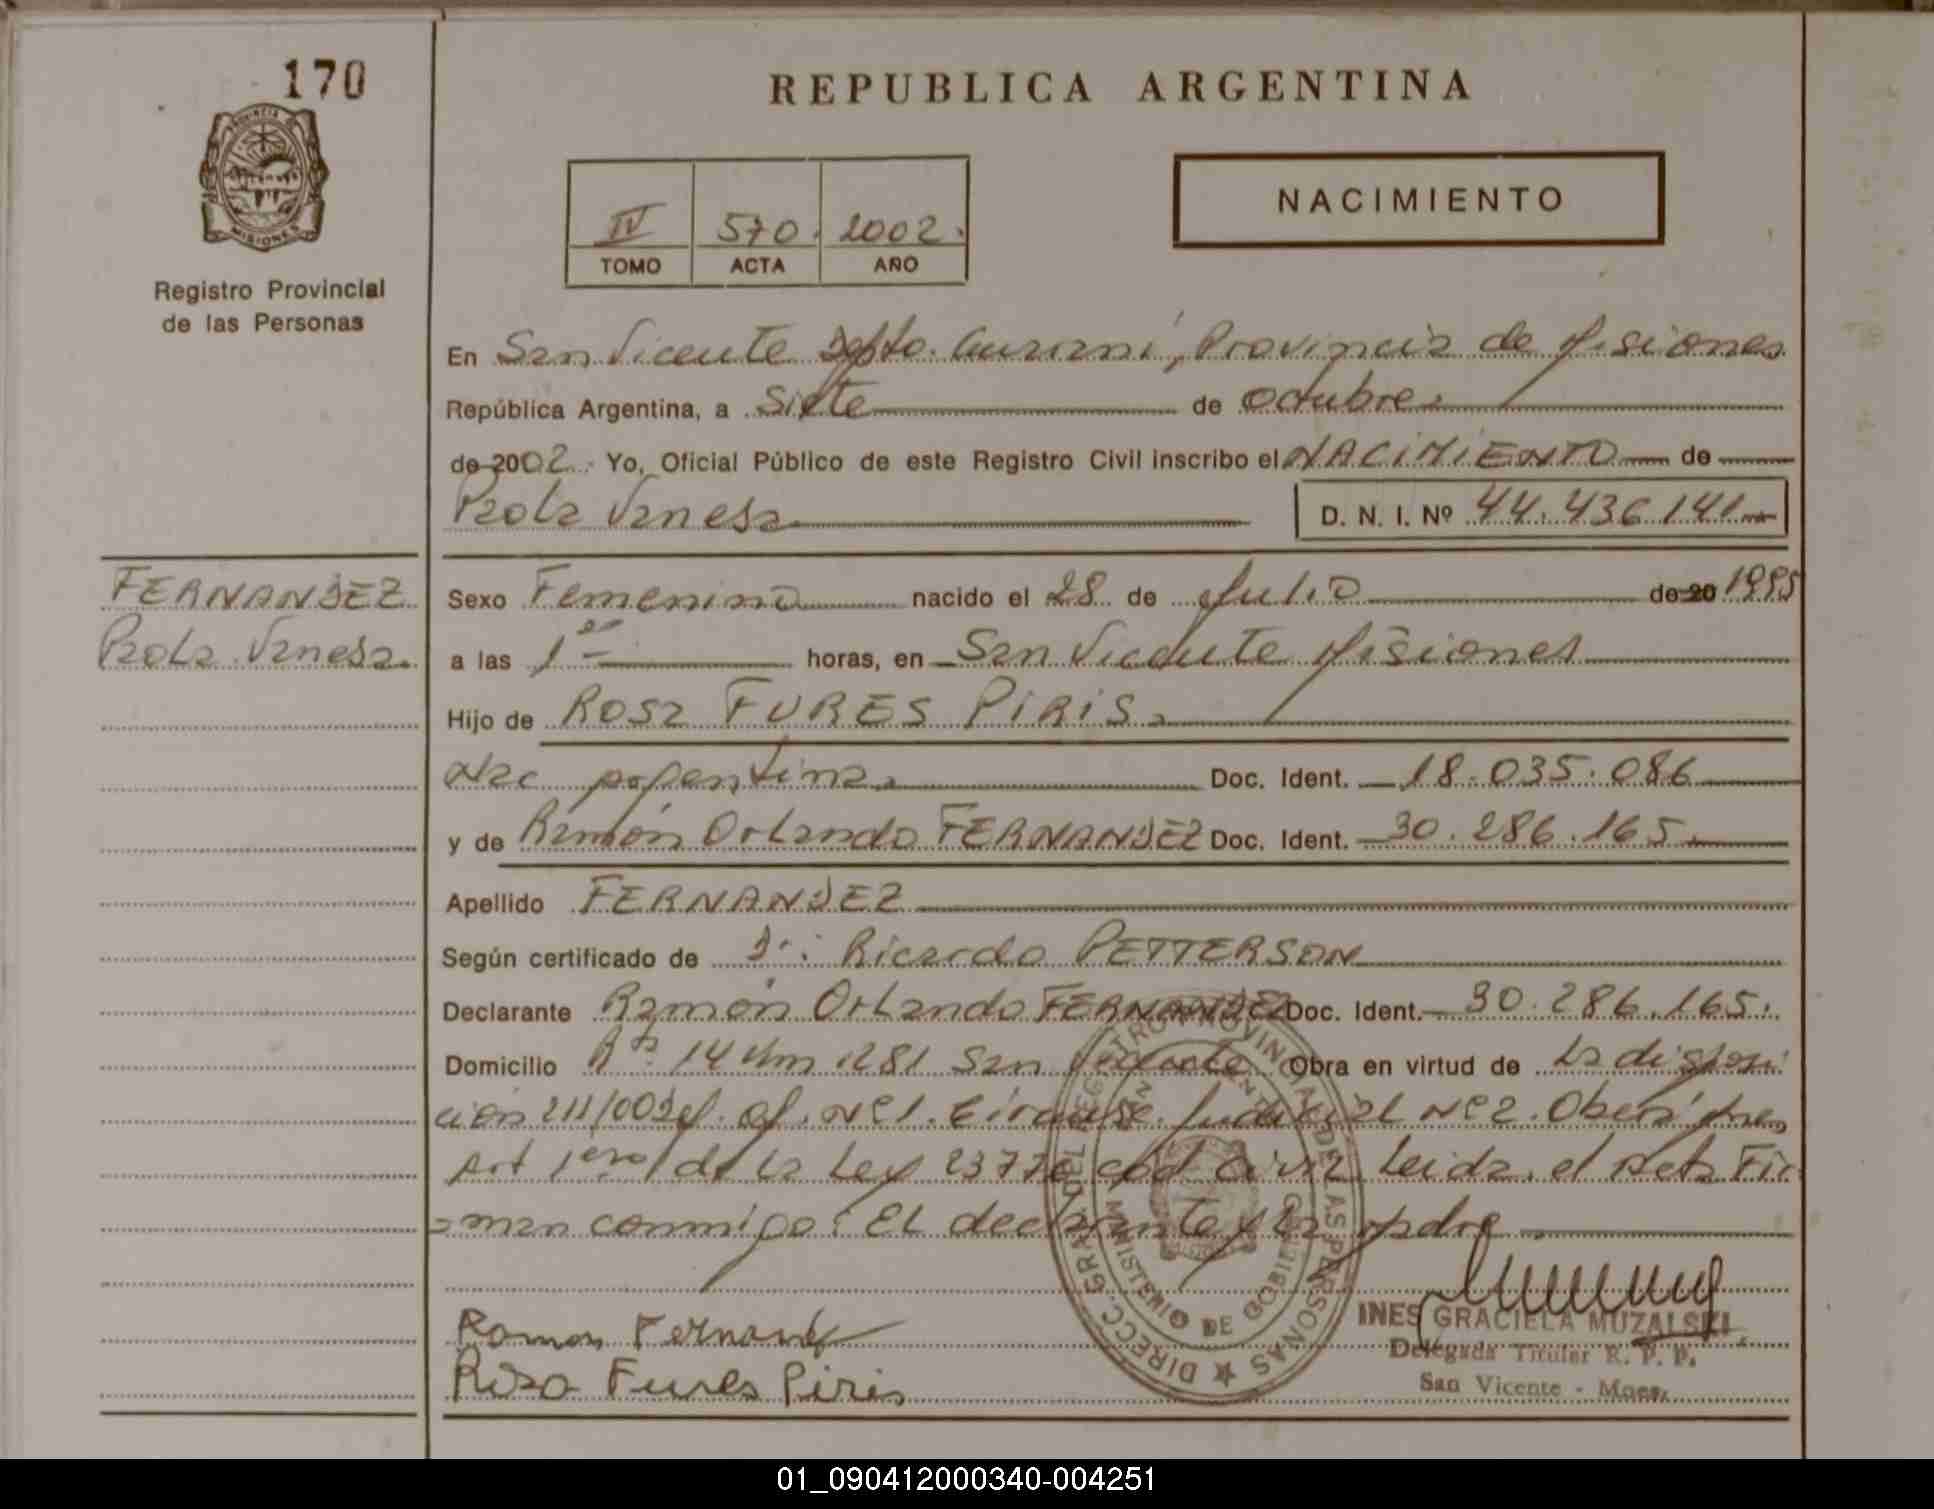 170
REPUBLICA ARGENTINA
PROVINCIA DE
MISIONES
Registro Provincial
de las Personas
NACIMIENTO
IV 570. 2002.
TOMO ACTA AÑO
En San Vicente Depto. Guaraní, Provincia de Misiones
República Argentina, a Siete de Octubre.
de 2002. Yo, Oficial Público de este Registro Civil inscribo el NACIMIENTO de
Paola Vanesa D. N. I. Nº 44.436.141
FERNANDEZ
Paola Vanesa.
Sexo Femenino nacido el 28 de Julio de 20 1995
a las 1 horas, en San Vicente Misiones
Hijo de Rosa FURES PIRIS.
Nac. Argentina. Doc. Ident. 18.035.086
y de Ramón Orlando FERNANDEZ Doc. Ident. 30.286.165.
Apellido FERNANDEZ
Según certificado de Ricardo PETTERSON
Declarante Ramón Orlando FERNANDEZ Doc. Ident. 30.286.165.
Domicilio 14 Km 1281 San Vicente Obra en virtud de La disposi
ción Nº1. Judicial Nº2.
Art 1ero de la Ley Civil Leida el Acta Fir
man conmigo: El declarante y la Madre.
Ramon Fernand
Rosa Fures Piris
DIRECC. GRAL. DEL REGISTRO PROVINCIAL DE LAS PERSONAS
MINISTERIO DE GOBIERNO
INES GRACIELA MUZALSKI
Delegada Titular R. P. P.
San Vicente - Mnes.
01_090412000340-004251